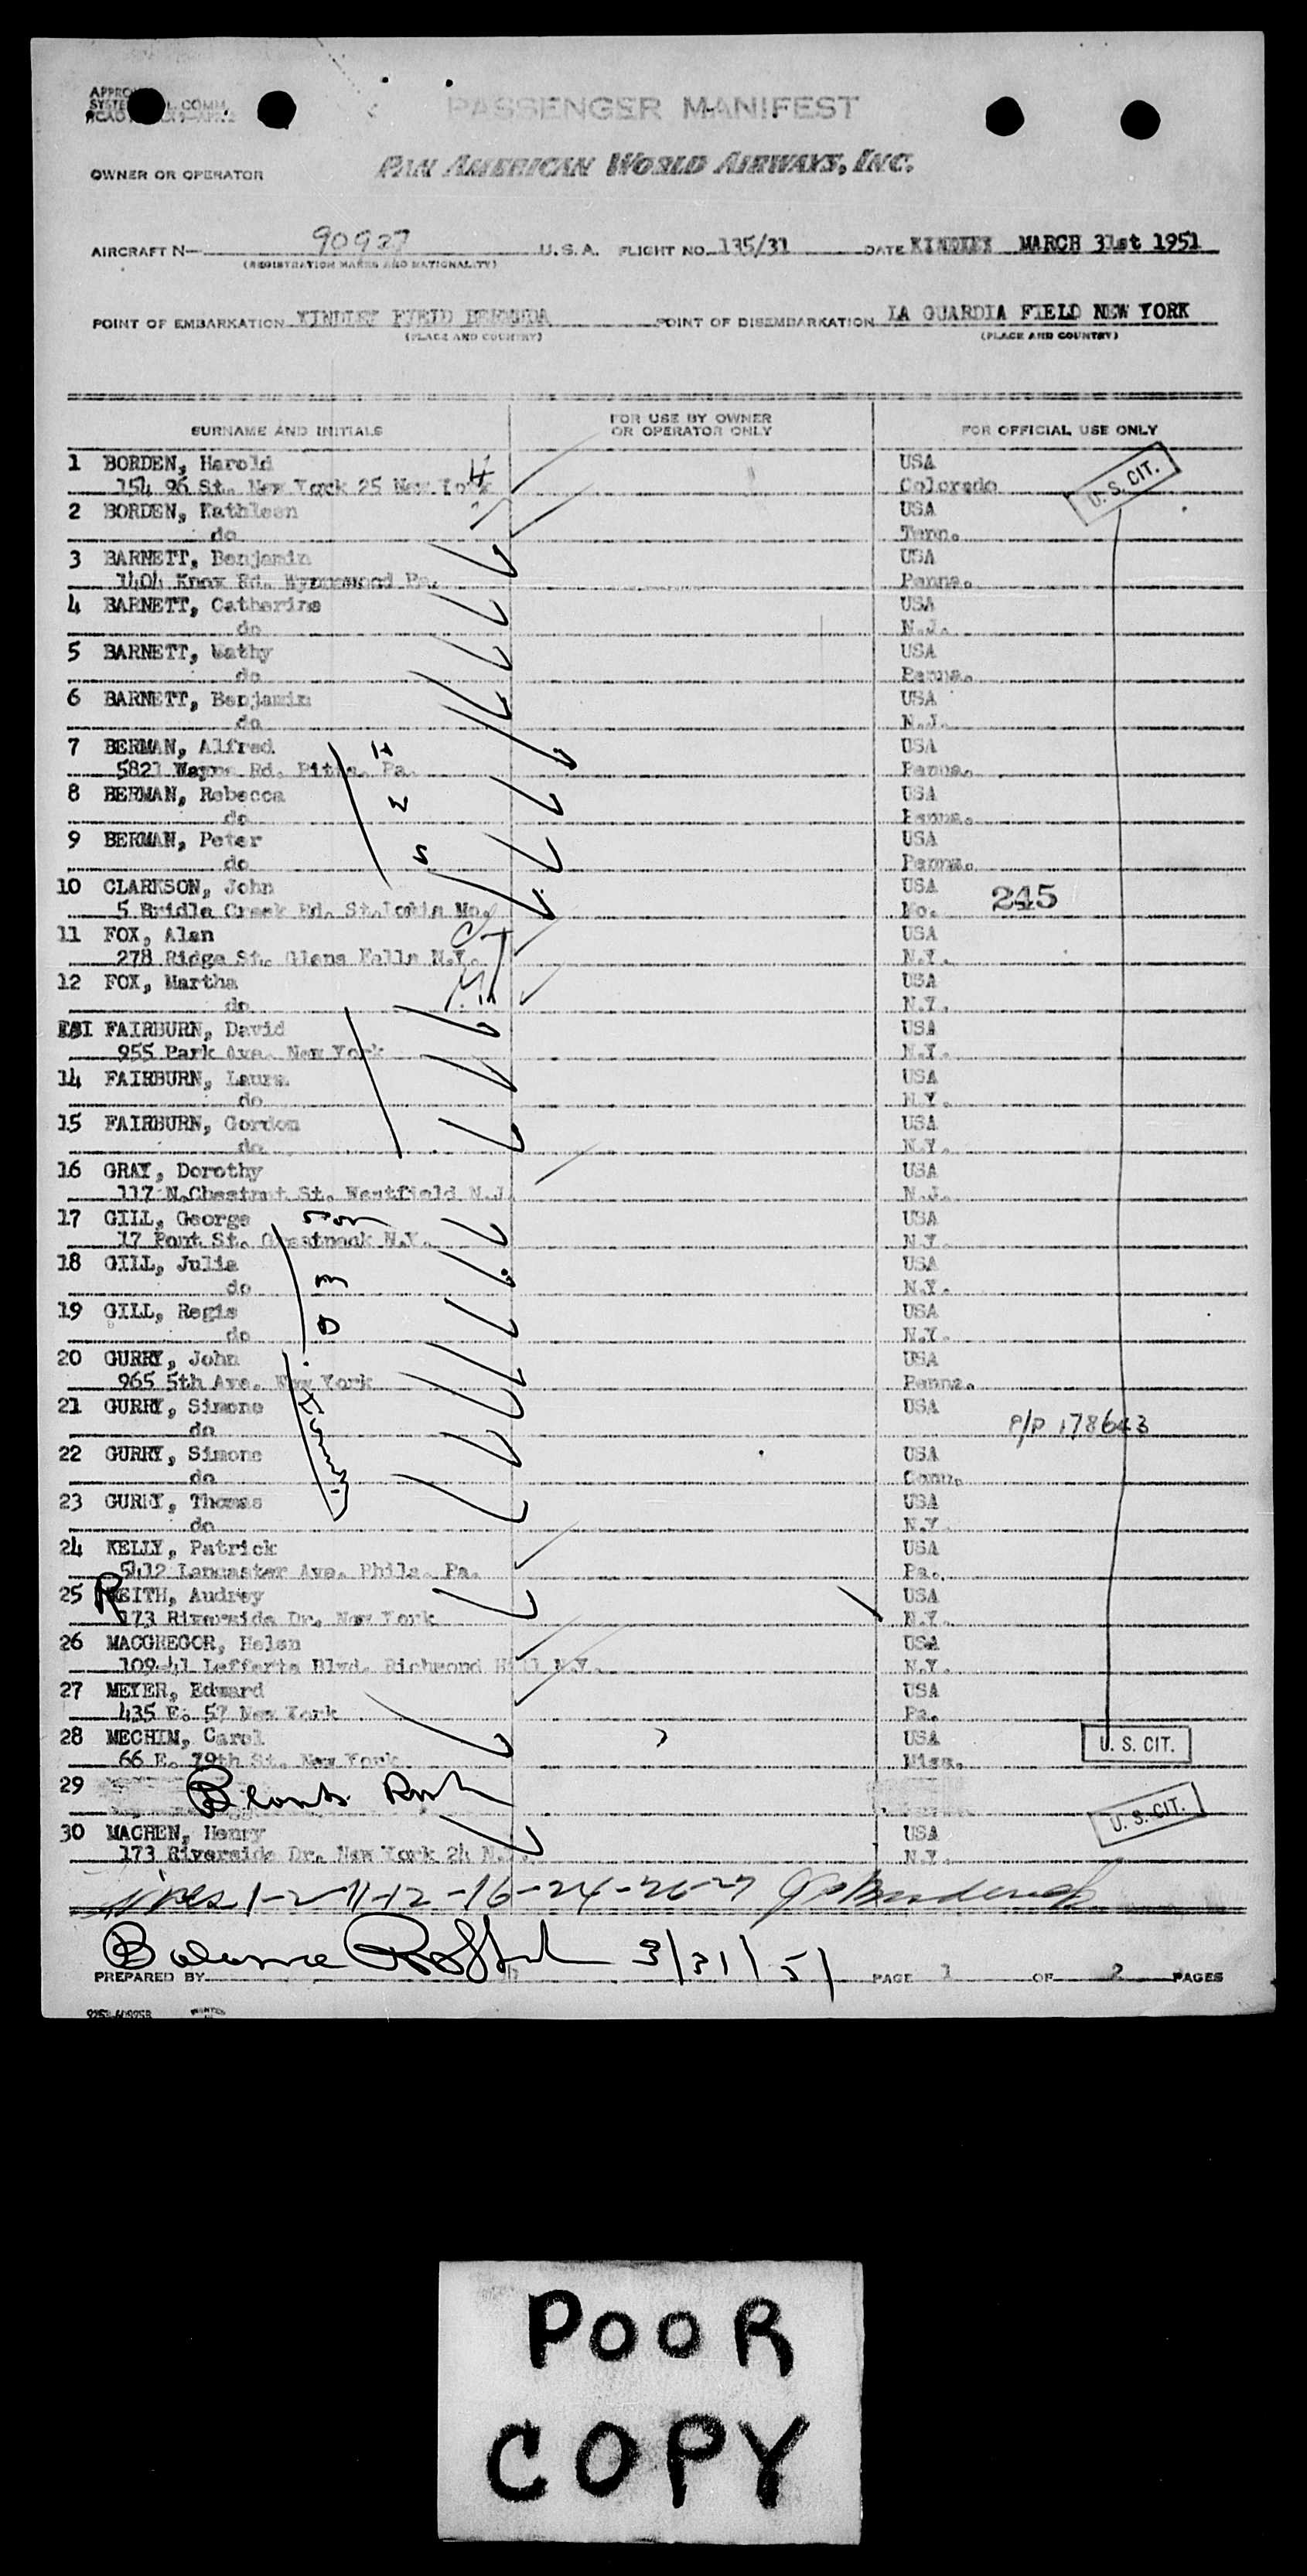 PASSENGER MANIFEST
OWNER OR OPERATOR PAN AMERICAN WORLD AIRWAYS, INC.
AIRCRAFT N— 90927 U.S.A. FLIGHT NO. 135/31 DATE KINDLEY MARCH 31st 1951
(REGISTRATION MARKS AND NATIONALITY)
POINT OF EMBARKATION KINDLEY FIELD BERMUDA POINT OF DISEMBARKATION LA GUARDIA FIELD NEW YORK
(PLACE AND COUNTRY) (PLACE AND COUNTRY)
SURNAME AND INITIALS FOR USE BY OWNER OR OPERATOR ONLY FOR OFFICIAL USE ONLY
1 BORDEN, Harold USA
154 96 St. New York 25 New York Colorado
U. S. CIT.
2 BORDEN, Kathleen USA
do Tenn.
3 BARNETT, Benjamin USA
1404 Knox Rd. Wynnewood Pa. Penna.
4 BARNETT, Catherine USA
do N.J.
5 BARNETT, Wathy USA
do Penna.
6 BARNETT, Benjamin USA
do N.J.
7 BERMAN, Alfred H USA
5821 Wayne Rd. Pitts. Pa. Penna.
8 BERMAN, Rebecca W USA
do Penna.
9 BERMAN, Peter S USA
do Penna.
10 CLARKSON, John USA 245
5 Bridle Creek Rd. St.Louis Mo. Mo.
11 FOX, Alan USA
278 Ridge St. Glens Falls N.Y. N.Y.
12 FOX, Martha USA
do N.Y.
FAIRBURN, David USA
955 Park Ave. New York N.Y.
14 FAIRBURN, Laura USA
do N.Y.
15 FAIRBURN, Gordon USA
do N.Y.
16 GRAY, Dorothy USA
117 N.Chestnut St. Westfield N.J. N.J.
17 GILL, George Son USA
17 Pont St. Greatneck N.Y. N.Y.
18 GILL, Julia m USA
do N.Y.
19 GILL, Regis D USA
do N.Y.
20 GURRY, John USA
965 5th Ave. New York Penna.
21 GURRY, Simone USA
do P/P 178643
22 GURRY, Simone USA
do Conn.
23 GURRY, Thomas USA
do N.Y.
24 KELLY, Patrick USA
5412 Lancaster Ave. Phila. Pa. Pa.
25 REITH, Audrey USA
173 Riverside Dr. New York N.Y.
26 MACGREGOR, Helen USA
109-41 Lefferts Blvd. Richmond Hill N.Y. N.Y.
27 MEYER, Edward USA
435 E. 57 New York Pa.
28 MECHIM, Carol USA U. S. CIT.
66 E. 79th St. New York Miss.
29
U. S. CIT.
30 MACHEN, Henry USA
173 Riverside Dr. New York 24 N.Y. N.Y.
1-2-11-12-16-24-26-27
Balance 3/31/51
PREPARED BY PAGE 1 OF 2 PAGES
POOR
COPY